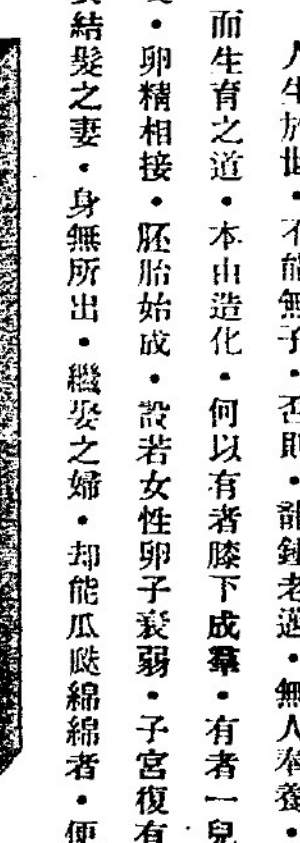 人生於世・不能無子・否則・龍鍾老邁・無人奉養・
而生育之道・本由造化・何以有者膝下成羣・有者一兒
・卵精相接・胚胎始成・設若女性卵子衰弱・子宮復有
結髮之妻・身無所出・繼娶之婦・却能瓜瓞綿綿者・便